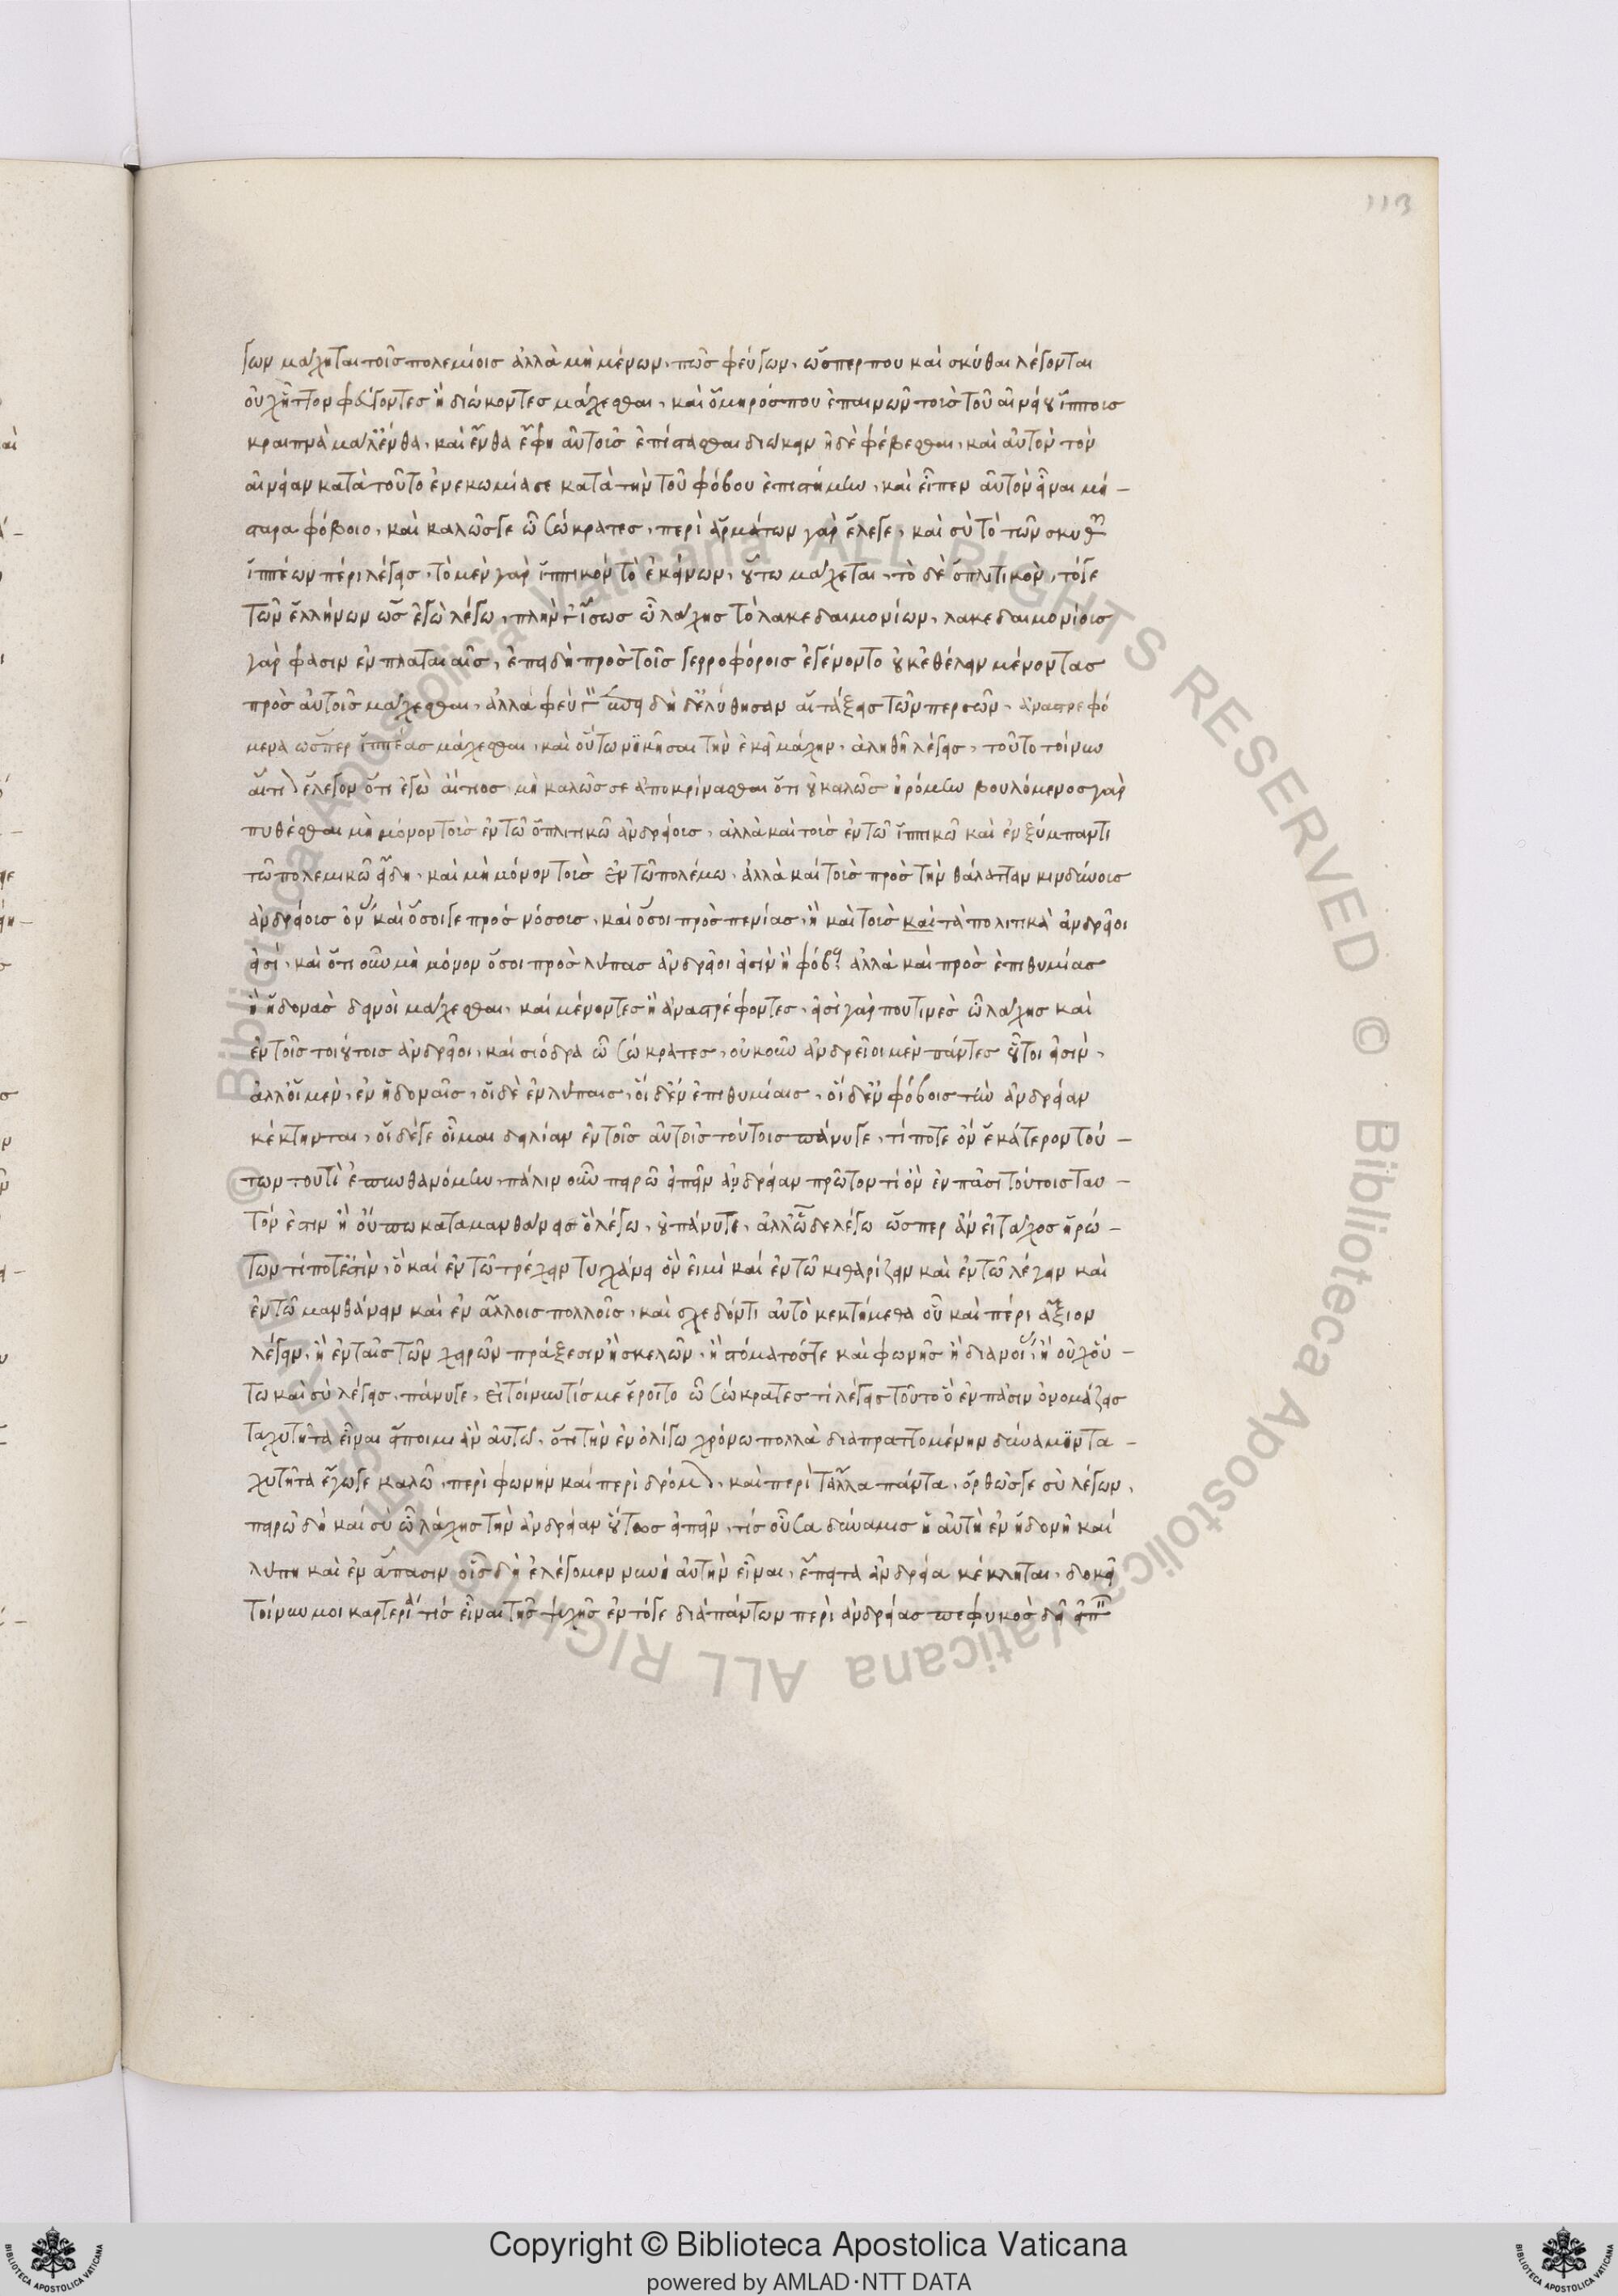 113
γων μάχηται τοῖς πολεμίοις ἀλλὰ μὴ μένων, πῶς φεύγων, ὥσπερ που καὶ σκύθαι λέγονται
οὐχ ἧττον φεύγοντες ἢ διώκοντες μάχεσθαι, καὶ ὅμηρός που ἐπαινῶν τοὺς τοῦ αἰνείου ἵππους
κραιπνὰ μάλ' ἔνθα, καὶ ἔνθα ἔφη αὐτοὺς ἐπίστασθαι διώκειν ἠδὲ φέβεσθαι, καὶ αὐτὸν τὸν
αἰνείαν κατὰ τοῦτο ἐνεκωμίασε κατὰ τὴν τοῦ φόβου ἐπιστήμην, καὶ εἶπεν αὐτὸν εἶναι μή-
στωρα φόβοιο, καὶ καλῶς γε ὦ σώκρατες, περὶ ἁρμάτων γὰρ ἔλεγε, καὶ σὺ τὸ τῶν σκυθῶν
ἱππέων πέρι λέγεις, τὸ μὲν γὰρ ἱππικὸν τὸ ἐκείνων, οὕτω μάχεται, τὸ δὲ ὁπλιτικὸν, τό γε
τῶν ἑλλήνων ὡς ἐγὼ λέγω, πλήν γ' ἴσως ὦ λάχης τὸ λακεδαιμονίων, λακεδαιμονίους
γάρ φασιν ἐν πλαταιαῖς, ἐπειδὴ πρὸς τοῖς γερροφόροις ἐγένοντο οὐκ ἐθέλειν μένοντας
πρὸς αὐτοὺς μάχεσθαι, ἀλλὰ φεύγειν ἐπειδὴ δ' ἐλύθησαν αἱ τάξεις τῶν περσῶν, ἀναστρεφο
μένους ὥσπερ ἱππέας μάχεσθαι, καὶ οὕτω νικῆσαι τὴν ἐκεῖ μάχην, ἀληθῆ λέγεις, τοῦτο τοίνυν
ἄρτι ἔλεγον ὅτι ἐγὼ αἴτιος μὴ καλῶς σε ἀποκρίνασθαι ὅτι οὐ καλῶς ἠρόμην βουλόμενος γάρ
πυθέσθαι μὴ μόνον τοὺς ἐν τῶ ὁπλιτικῶ ἀνδρείους, ἀλλὰ καὶ τοὺς ἐν τῶ ἱππικῶ καὶ ἐν ξύμπαντι
τῶ πολεμικῶ εἴδει, καὶ μὴ μόνον τοὺς ἐν τῶ πολέμω, ἀλλὰ καὶ τοὺς πρὸς τὴν θάλατταν κινδύνοις
ἀνδρείους ὄντας καὶ ὅσοι γε πρὸς νόσους, καὶ ὅσοι πρὸς πενίας, ἢ καὶ τοὺς καὶ τὰ πολιτικὰ ἀνδρεῖοι
εἰσί, καὶ ἔτι οὖν μὴ μόνον ὅσοι πρὸς λύπας ἀνδρεῖοι εἰσὶν ἢ φόβους ἀλλὰ καὶ πρὸς ἐπιθυμίας
ἢ ἡδονὰς δεινοὶ μάχεσθαι, καὶ μένοντες ἢ ἀναστρέφοντες, εἰσὶ γάρ που τινὲς ὦ λάχης καὶ
ἐν τοῖς τοιούτοις ἀνδρεῖοι, καὶ σφόδρα ὦ σώκρατες, οὐκοῦν ἀνδρεῖοι μὲν πάντες οὗτοι εἰσὶν,
ἀλλ' οἱ μὲν, ἐν ἡδοναῖς, οἱ δὲ ἐν λύπαις, οἱ δ' ἐν ἐπιθυμίαις, οἱ δ' ἐν φόβοις τὴν ἀνδρείαν
κέκτηνται, οἱ δέ γε οἶμαι δειλίαν ἐν τοῖς αὐτοῖς τούτοις πάνυ γε, τί ποτε ὂν ἑκάτερον τού-
των τουτὶ ἐπυνθανόμην, πάλιν οὖν πειρῶ εἰπεῖν ἀνδρείαν πρῶτον τί ὂν ἐν πᾶσι τούτοις ταυ-
τόν ἐστιν ἢ οὔπω καταμανθάνεις ὃ λέγω, οὐ πάνυ τε, ἀλλ' ὧδε λέγω ὥσπερ ἂν εἰ τάχος ἠρώ-
των τί ποτ' ἐστὶν, ὃ καὶ ἐν τῶ τρέχειν τυγχάνει ὂν εἰμὶ καὶ ἐν τῶ κιθαρίζειν καὶ ἐν τῶ λέγειν καὶ
ἐν τῶ μανθάνειν καὶ ἐν ἄλλοις πολλοῖς, καὶ σχεδόν τι αὐτὸ κεκτήμεθα οὗ καὶ πέρι ἄξιον
λέγειν, ἢ ἐν ταῖς τῶν χειρῶν πράξεσιν ἢ σκελῶν, ἢ στόματός τε καὶ φωνῆς ἢ διανοίας, ἢ οὐχ οὕ-
τω καὶ σὺ λέγεις, πάνυ γε, εἰ τοίνυν τίς με ἔροιτο ὦ σώκρατες τί λέγεις τοῦτο ὃ ἐν πᾶσιν ὀνομάζεις
ταχυτῆτα εἶναι εἴποιμι ἂν αὐτῶ, ὅτι τὴν ἐν ὀλίγω χρόνω πολλὰ διαπραττομένην δύναμιν τα-
χυτῆτα ἔγωγε καλῶ, περὶ φωνὴν καὶ περὶ δρόμον, καὶ περὶ τἆλλα πάντα, ὀρθῶς γε σὺ λέγων,
πειρῶ δὴ καὶ σὺ ὦ λάχης τὴν ἀνδρείαν οὕτως εἰπεῖν, τίς οὖσα δύναμις ἡ αὐτὴ ἐν ἡδονῆ καὶ
λύπη καὶ ἐν ἅπασιν οἷς δὴ ἐλέγομεν νυνὴ αὐτὴν εἶναι, ἔπειτα ἀνδρεία κέκληται, δοκεῖ
τοίνυν μοι καρτερία τις εἶναι τῆς ψυχῆς ἐν τό γε διὰ πάντων περὶ ἀνδρείας πεφυκὸς δεῖ εἰπεῖν
Copyright © Biblioteca Apostolica Vaticana
powered by AMLAD·NTT DATA